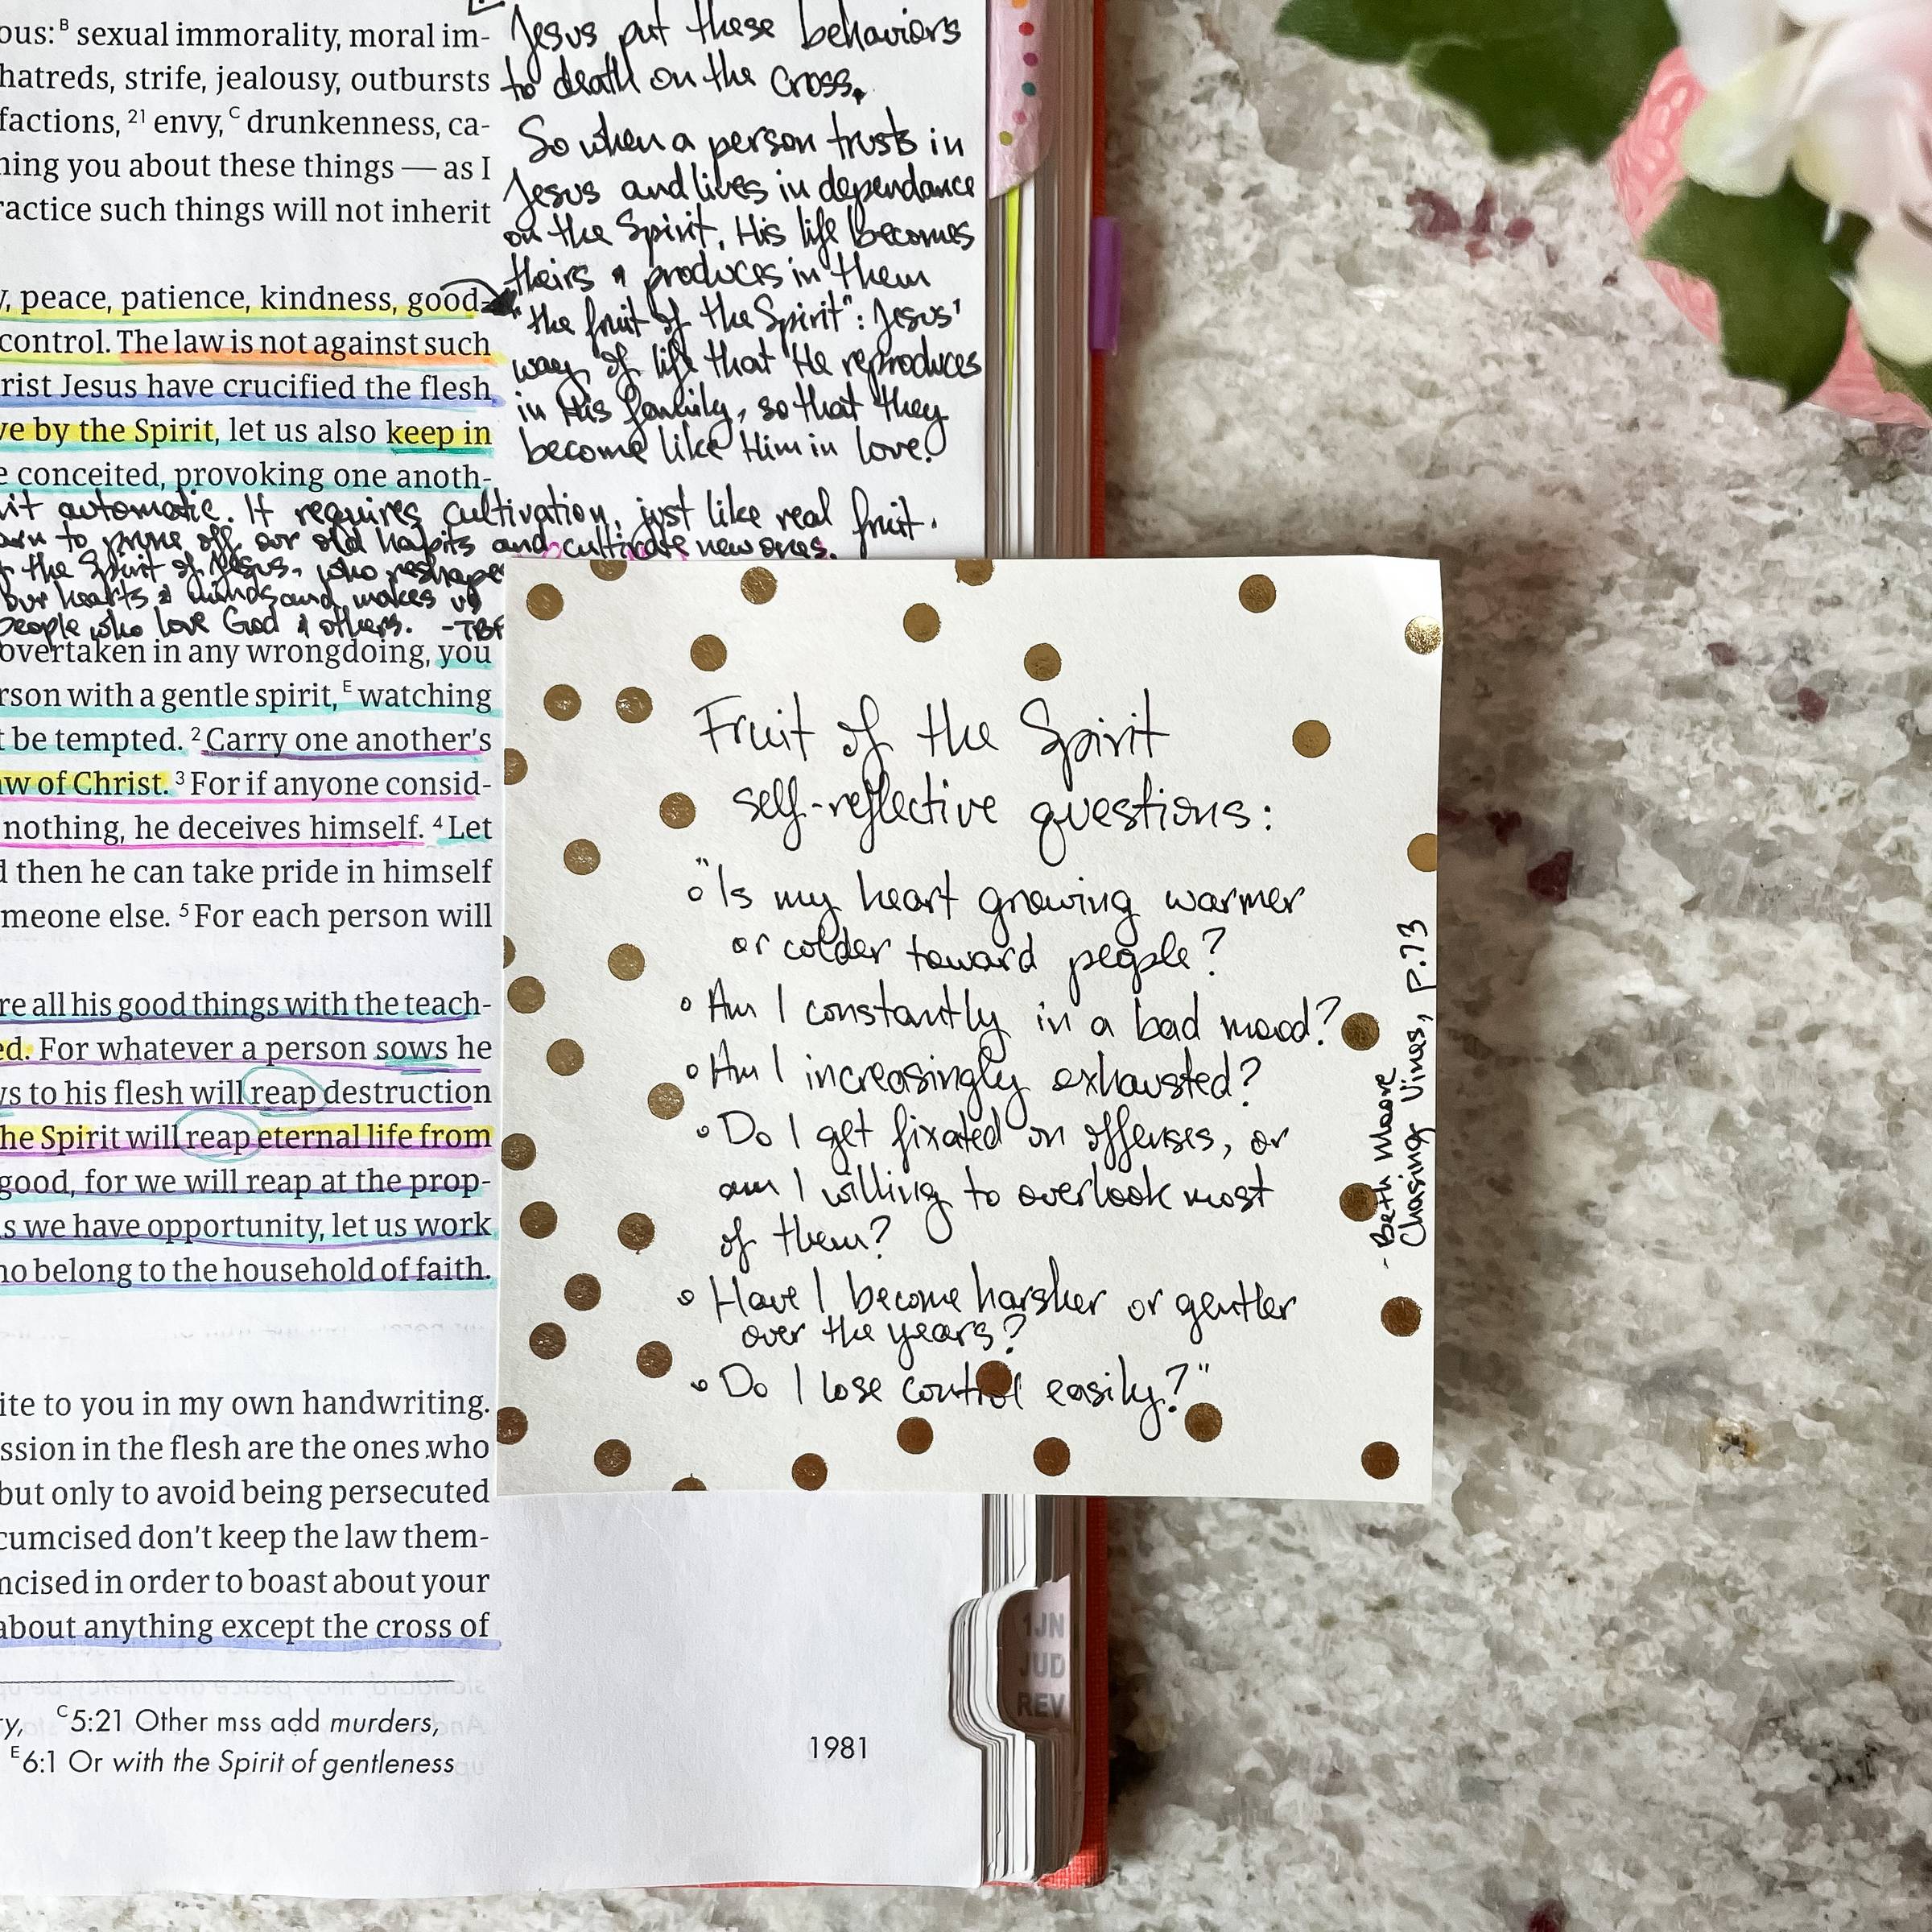 ous:ᴮ sexual immorality, moral im-
hatreds, strife, jealousy, outbursts
factions, ²¹ envy,ᶜ drunkenness, ca-
ning you about these things — as I
ractice such things will not inherit
y, peace, patience, kindness, good-
control. The law is not against such
rist Jesus have crucified the flesh
ve by the Spirit, let us also keep in
e conceited, provoking one anoth-
Jesus put these behaviors
to death on the cross.
So when a person trusts in
Jesus and lives in dependance
on the Spirit, His life becomes
theirs & produces in them
"the fruit of the Spirit": Jesus'
way of life that He reproduces
in His family, so that they
become like Him in love.
it automatic. It requires cultivation, just like real fruit.
to prune off our old habits and cultivate new ones.
the Spirit of Jesus, who reshape
our hearts & minds and makes us
people who love God & others. -TBP
overtaken in any wrongdoing, you
rson with a gentle spirit,ᴱ watching
t be tempted. ² Carry one another's
aw of Christ. ³ For if anyone consid-
nothing, he deceives himself. ⁴ Let
d then he can take pride in himself
meone else. ⁵ For each person will
re all his good things with the teach-
ed. For whatever a person sows he
ws to his flesh will reap destruction
he Spirit will reap eternal life from
good, for we will reap at the prop-
s we have opportunity, let us work
ho belong to the household of faith.
ite to you in my own handwriting.
ssion in the flesh are the ones who
but only to avoid being persecuted
cumcised don't keep the law them-
ncised in order to boast about your
about anything except the cross of
ry, ᶜ5:21 Other mss add murders,
ᴱ6:1 Or with the Spirit of gentleness
1981
Fruit of the Spirit
self-reflective questions:
• "Is my heart growing warmer
or colder toward people?
• Am I constantly in a bad mood?
• Am I increasingly exhausted?
• Do I get fixated on offenses, or
am I willing to overlook most
of them?
• Have I become harsher or gentler
over the years?
• Do I lose control easily?"
- Beth Moore
Chasing Vines, p.73
1JN
JUD
REV